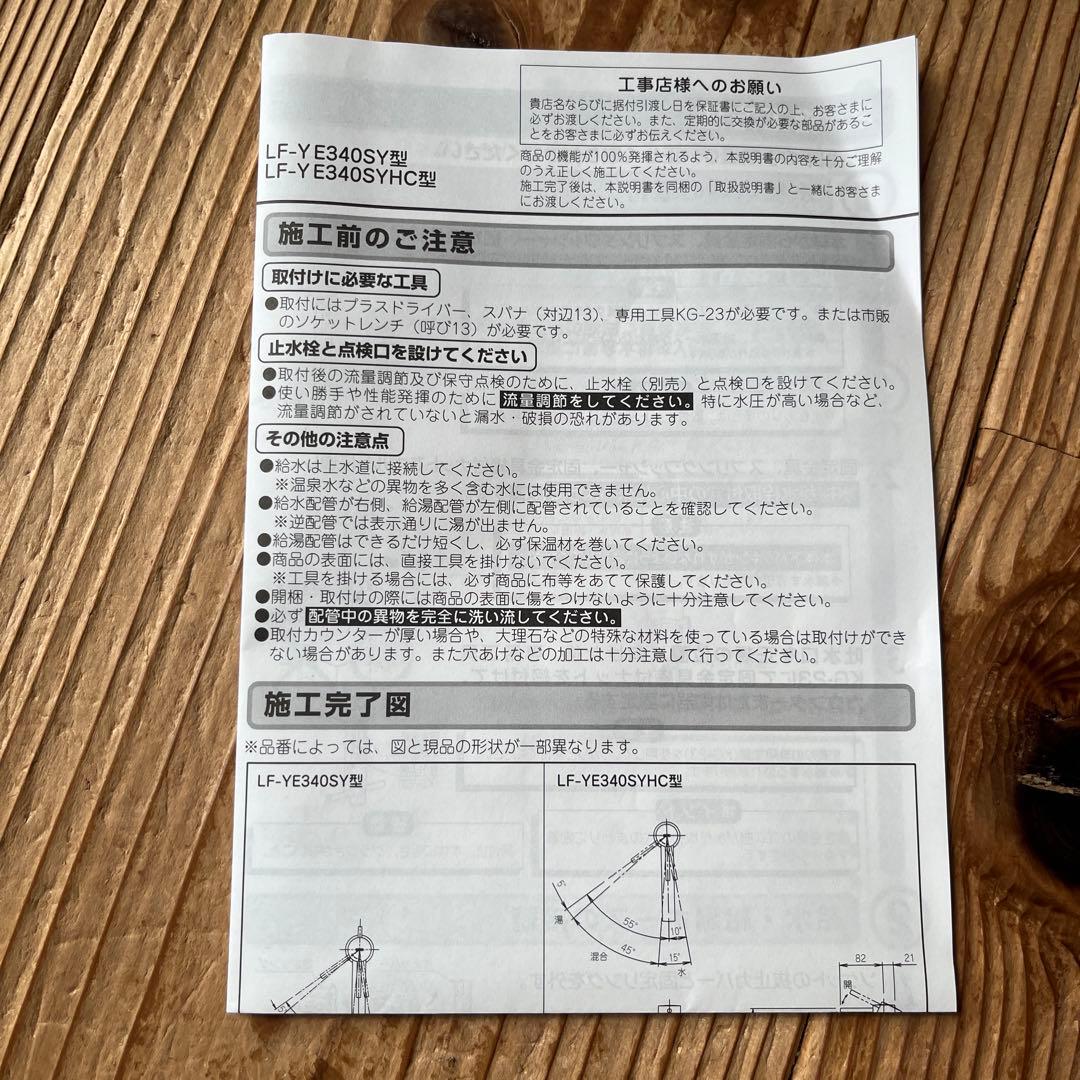 工事店様へのお願い
貴店名ならびに据付引渡し日を保証書にご記入の上、お客さまに
必ずお渡しください。また、定期的に交換が必要な部品があるこ
とをお客さまに必ずお伝えください。
LF-YE340SY型
LF-YE340SYHC型
商品の機能が100%発揮されるよう、本説明書の内容を十分ご理解
のうえ正しく施工してください。
施工完了後は、本説明書を同梱の「取扱説明書」と一緒にお客さま
にお渡しください。
施工前のご注意
取付けに必要な工具
●取付にはプラスドライバー、スパナ（対辺13）、専用工具KG-23が必要です。または市販
のソケットレンチ（呼び13）が必要です。
止水栓と点検口を設けてください
●取付後の流量調節及び保守点検のために、止水栓（別売）と点検口を設けてください。
●使い勝手や性能発揮のために流量調節をしてください。特に水圧が高い場合など、
流量調節がされていないと漏水・破損の恐れがあります。
その他の注意点
●給水は上水道に接続してください。
※温泉水などの異物を多く含む水には使用できません。
●給水配管が右側、給湯配管が左側に配管されていることを確認してください。
※逆配管では表示通りに湯が出ません。
●給湯配管はできるだけ短くし、必ず保温材を巻いてください。
●商品の表面には、直接工具を掛けないでください。
※工具を掛ける場合には、必ず商品に布等をあてて保護してください。
●開梱・取付けの際には商品の表面に傷をつけないように十分注意してください。
●必ず配管中の異物を完全に洗い流してください。
●取付カウンターが厚い場合や、大理石などの特殊な材料を使っている場合は取付けができ
ない場合があります。また穴あけなどの加工は十分注意して行ってください。
施工完了図
※品番によっては、図と現品の形状が一部異なります。
LF-YE340SY型
LF-YE340SYHC型
5°
湯
55°
10°
45°
15°
混合
水
82
21
開